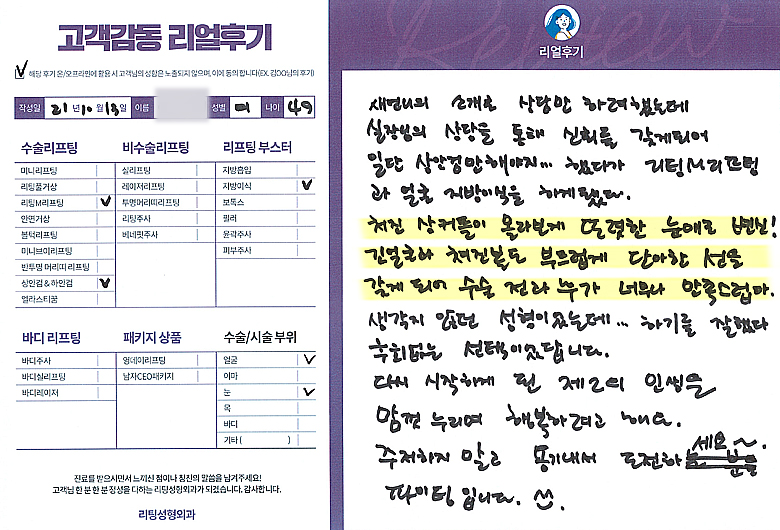 고객감동 리얼후기
해당 후기 온/오프라인에 활용 시 고객님의 성함은 노출되지 않으며, 이에 동의 합니다(EX. 김OO님의 후기)
작성일 21년 10월 13일 이름 성별 여 나이 49
수술리프팅 비수술리프팅 리프팅 부스터
미니리프팅 실리프팅 지방흡입
리팅풀거상 레이저리프팅 지방이식
리팅M리프팅 투명머리띠리프팅 보톡스
안면거상 리팅주사 필러
붐턱리프팅 베네핏주사 윤곽주사
미니브이리프팅 피부주사
반투명 머리띠 리프팅
상안검 & 하안검
엘라스티꿈
바디 리프팅 패키지 상품 수술/시술 부위
바디주사 영데이리프팅 얼굴
바디실리프팅 남자CEO패키지 이마
바디레이저 눈
목
바디
기타 ( )
진료를 받으시면서 느끼신 점이나 칭찬의 말씀을 남겨주세요!
고객님 한 분 한 분 정성을 다하는 리팅성형외과가 되겠습니다. 감사합니다.
리팅성형외과
Review
리얼후기
새언니의 소개로 상담만 하려했는데
실장님의 상담을 통해 신뢰를 갖게되어
일단 상안검만해야지... 했다가 리팅M리프팅
과 얼굴 지방이식을 하게됐다.
처진 상커플이 몰라보게 또렷한 눈매로 변신!
긴얼굴과 쳐진볼도 부드럽게 단아한 선을
갖게 되어 수술 전과 누가 너무나 만족스럽다.
생각지 않던 성형이였는데... 하기를 잘했다
후회없는 선택이였답니다.
다시 시작하게 된 제2의 인생을
맘껏 누리며 행복하려고 해요.
주저하지 말고 용기내서 도전하세요~
파이팅 입니다.